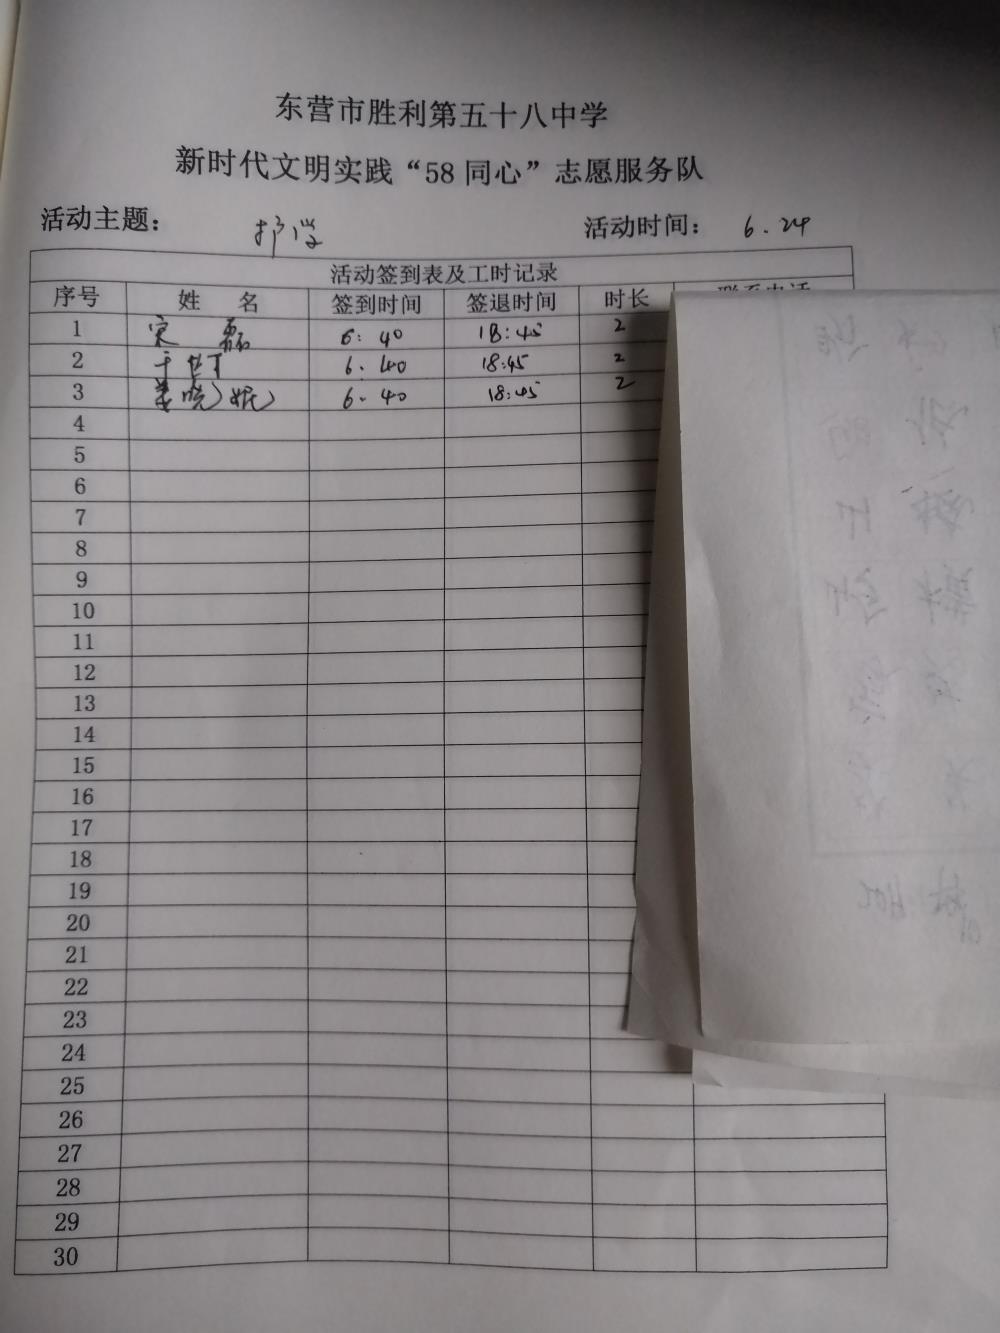 东营市胜利第五十八中学
新时代文明实践“58同心”志愿服务队
活动主题： 护学 活动时间： 6.24
活动签到表及工时记录
序号 姓 名 签到时间 签退时间 时长 联系电话
1 宋磊 6:40 18:45 2
2 6.40 18:45 2
3 姜晓妮 6.40 18:45 2
4
5
6
7
8
9
10
11
12
13
14
15
16
17
18
19
20
21
22
23
24
25
26
27
28
29
30